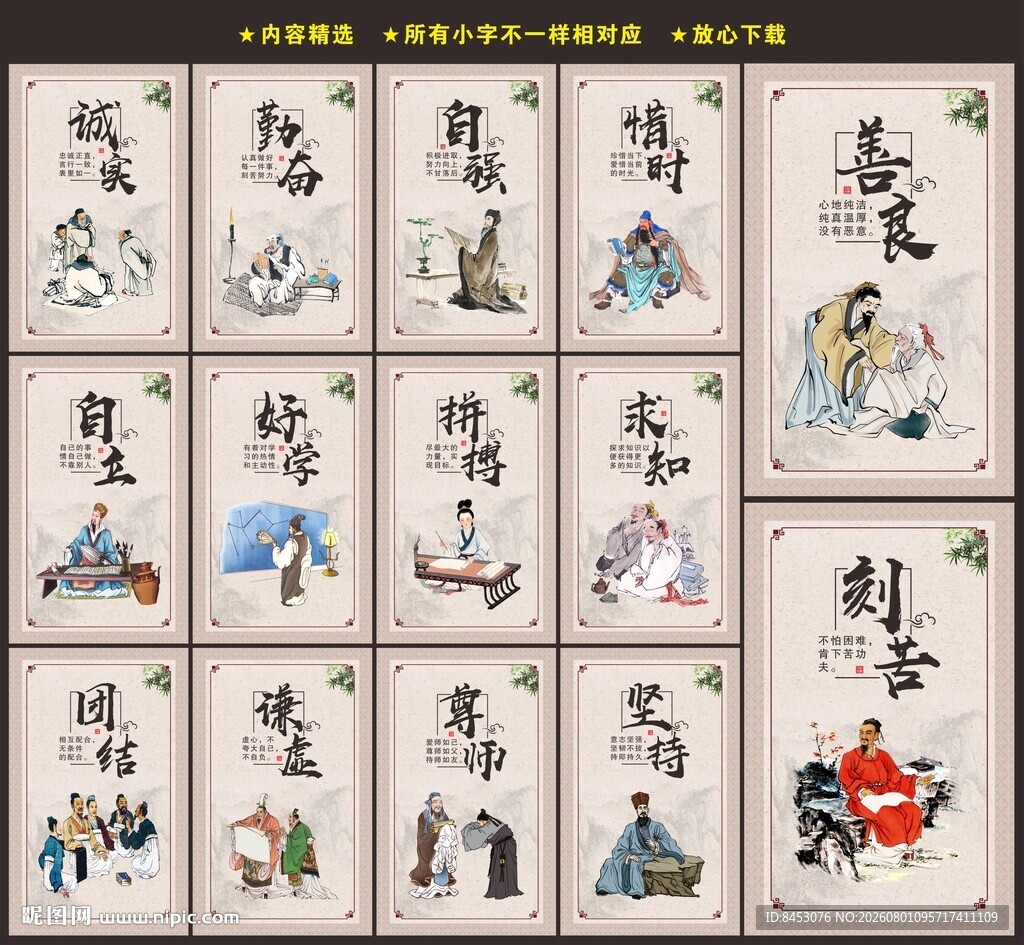 ★内容精选 ★所有小字不一样相对应 ★放心下载
诚实
忠诚正直，
言行一致，
表里如一。
勤奋
认真做好
每一件事，
刻苦努力。
自强
积极进取，
努力向上，
不甘落后。
惜时
珍惜当下
爱惜当前
的时光。
善良
心地纯洁，
纯真温厚，
没有恶意。
自立
自己的事
情自己做，
不靠别人。
好学
有着对学
习的热情
和主动性。
拼搏
尽最大的
力量，实
现目标。
求知
探求知识以
便获得更
多的知识。
刻苦
不怕困难，
肯下苦功
夫。
团结
相互配合，
无条件
的配合。
谦虚
虚心，不
夸大自己，
不自负。
尊师
爱师如己，
尊师如父，
待师如友。
坚持
意志坚强，
坚韧不拔，
持即持久。
昵图网 www.nipic.com
ID:8453076 NO:20260801095717411109